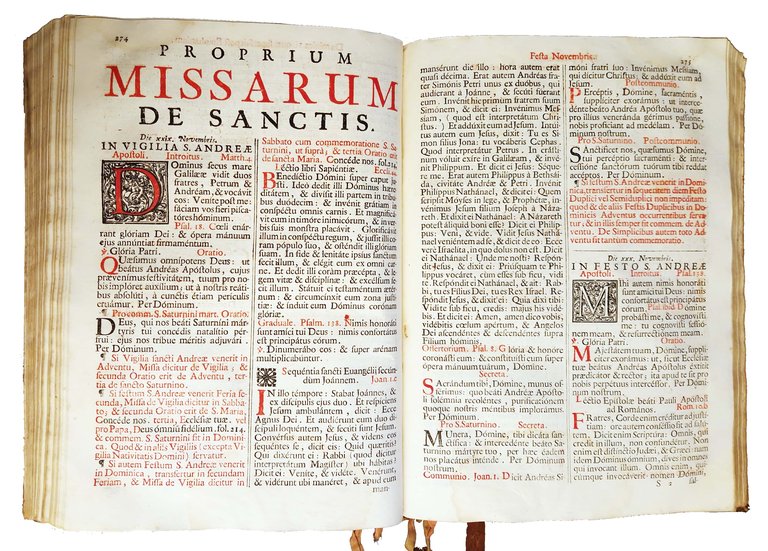 274
PROPRIUM
MISSARUM
DE SANCTIS.
Die xxix. Novembris.
IN VIGILIA S. ANDREÆ
Apostoli. Introitus. Matth. 4.
DOminus secus mare
Galilææ vidit duos
fratres, Petrum &
Andréam, & vocávit
eos: Venite post me:
fáciam vos fieri pis-
catóreshóminum.
Psal. 18. Cœli enár-
rant glóriam Dei: & ópera mánuum
ejus annúntiat firmaméntum.
℣. Glória Patri. Oratio.
QUæsumus omnipotens Deus: ut
beátus Andréas Apóstolus, cujus
prævenímus festivitátem, tuum pro no-
bis implóret auxílium: ut à nostris reá-
tibus absolúti, à cunctis étiam perículis
eruámur. Per Dóminum.
¶ Pro comm. S. Saturnini mart. Oratio.
DEus, qui nos beáti Saturníni már-
tyris tui concédis natalítio pér-
frui: ejus nos tríbue méritis adjuvári.
Per Dóminum.
¶ Si Vigilia sancti Andreæ venerit in
Adventu, Missa dicitur de Vigilia; &
secunda Oratio erit de Adventu, ter-
tia de sancto Saturnino.
¶ Si festum S. Andreæ venerit Feria se-
cunda, Missa de Vigilia dicitur in Sabba-
to; & secunda Oratio erit de S. Maria,
Concéde nos. tertia, Ecclésiæ tuæ. vel
pro Papa, Deus ómnium fidélium. fol. 214.
& commem. S. Saturnini fit in Domini-
ca. Quod & in aliis Vigiliis (excepta Vi-
gilia Nativitatis Domini) servatur.
¶ Si autem Festum S. Andreæ venerit
in Dominica, transfertur in secundam
Feriam, & Missa de Vigilia dicitur in
Sabbato cum commemoratione S. Sa-
turnini, ut suprà; & tertia Oratio erit
de sancta Maria. Concéde nos. fol. 214.
Léctio libri Sapiéntiæ. Eccli. 44.
BEnedíctio Dómini super caput ju-
sti. Ideo dedit illi Dóminus hære-
ditátem, & divísit illi partem in tríbu-
bus duódecim: & invénit grátiam in
conspéctu omnis carnis. Et magnificá-
vit eum in timóre inimicórum, & in ver-
bis suis monstra placávit. Glorificávit
illum in conspéctu regum, & jussit illi co-
ram pópulo suo, & osténdit illi glóriam
suam. In fide & lenitáte ipsíus sanctum
fecit illum, & elégit eum ex omni car-
ne. Et dedit illi coràm præcépta, & le-
gem vitæ & disciplínæ: & excélsum fe-
cit illum. Státuit ei testaméntum ætér-
num: & circumcínxit eum zonâ justí-
tiæ: & índuit eum Dóminus corónam
glóriæ.
Graduale. Psalm. 138. Nimis honoráti
sunt amíci tui Deus: nimis confortátus
est principátus eórum.
℣. Dinumerábo eos: & super arénam
multiplicabúntur.
✠ Sequéntia sancti Evangélii secún-
dum Joánnem. Joan. 1. c.
IN illo témpore: Stabat Joánnes, &
ex discípulis ejus duo. Et respíciens
Jesum ambulántem, dicit: Ecce
Agnus Dei. Et audiérunt eum duo dis-
cípuli loquéntem, & secúti sunt Jesum.
Convérsus autem Jesus, & videns eos
sequéntes se, dicit eis: Quid quǽritis?
Qui dixérunt ei: Rabbi (quod dícitur
interpretátum Magíster) ubi hábitas?
Dicit eis: Veníte, & vidéte. Venérunt,
& vidérunt ubi manéret, & apud eum
man-
Festa Novembris.
275
mansérunt die illo: hora autem erat
quasi décima. Erat autem Andréas fra-
ter Simónis Petri unus ex duóbus, qui
audíerant à Joánne, & secúti fúerant
eum. Invénit hic primùm fratrem suum
Simónem, & dicit ei: Invénimus Mes-
síam, (quod est interpretátum Chris-
tus.) Et addúxit eum ad Jesum. Intúi-
tus autem eum Jesus, dixit: Tu es Si-
mon fílius Jona: tu vocáberis Cephas.
Quod interpretátur Petrus. In crásti-
num vóluit exíre in Galilǽam, & invé-
nit Philíppum. Et dicit ei Jesus: Séque-
re me. Erat autem Philíppus à Bethsái-
da, civitáte Andréæ & Petri. Invénit
Philíppus Nathánael, & dicit ei: Quem
scripsit Móyses in lege, & Prophétæ, in-
vénimus Jesum fílium Joseph à Názá-
reth. Et dixit ei Nathánael: A Názáreth
potest áliquid boni esse? Dicit ei Philíp-
pus: Veni, & vide. Vidit Jesus Nathá-
nael veniéntem ad se, & dicit de eo: Ecce
verè Israelíta, in quo dolus non est. Dicit ei
Nathánael: Unde me nosti? Respón-
dit Jesus, & dixit ei: Priúsquam te Phi-
líppus vocáret, cùm esses sub ficu, vidi te.
Respóndit ei Nathánael, & ait: Rab-
bi, tu es Fílius Dei, tu es Rex Israel. Res-
póndit Jesus, & dixit ei: Quia dixi tibi:
Vidi te sub ficu, credis: majus his vidé-
bis. Et dicit ei: Amen, amen dico vobis,
vidébitis cœlum apértum, & Angelos
Dei ascendéntes & descendéntes supra
Fílium hóminis.
Offertorium. Psal. 8. Glória & honóre
coronásti eum: & constituísti eum super
ópera mánuum tuárum, Dómine.
Secreta.
SAcrándum tibi, Dómine, munus of-
férimus: quo beáti Andréæ Apósto-
li solémnia recoléntes, purificatiónem
quoque nostris méntibus implorámus.
Per Dóminum.
Pro S. Saturnino. Secreta.
MUnera, Dómine, tibi dicáta sanc-
tífica: & intercedénte beáto Sa-
turníno mártyre tuo, per hæc éadem
nos placátus inténde. Per Dóminum
nostrum.
Communio. Joan. 1. Dicit Andréas Si-
móni fratri suo: Invénimus Mesíam,
qui dícitur Christus; & addúxit eum ad
Jesum. Postcommunio.
PErcéptis, Dómine, sacraméntis,
súpplices exorámus: ut interce-
dénte beáto Andréa Apóstolo tuo, quæ
pro illíus veneránda gérimus passióne,
nobis profíciant ad medélam. Per Dó-
minum nostrum.
Pro S. Saturnino. Postcommunio.
SAnctíficet nos, quǽsumus Dómine,
tui percéptio sacraménti: & inter-
céssio sanctórum tuórum tibi reddat
accéptos. Per Dóminum.
¶ Si festum S. Andreæ venerit in Domini-
ca, transfertur in sequentem diem Festo
Duplici vel Semiduplici non impeditam:
quod & de aliis Festis Duplicibus in Do-
minicis Adventus occurrentibus servà-
tur; & in illis semper fit commem. de Ad-
ventu. De Simplicibus autem toto Ad-
ventu fit tantùm commemoratio.
Die xxx. Novembris.
IN FESTO S. ANDREÆ
Apostoli. Introitus. Psal. 138.
MIhi autem nimis honoráti
sunt amíci tui Deus: nimis
confortátus est principátus
eórum. Psal. ibid. Dómine
probásti me, & cognovís-
ti me: tu cognovísti sessió-
nem meam, & resurrectiónem meam.
℣. Glória Patri. Oratio.
MAjestátem tuam, Dómine, súppli-
citer exorámus: ut, sicut Ecclésiæ
tuæ beátus Andréas Apóstolus éxtitit
prædicátor & rector; ita apud te sit pro
nobis perpétuus intercéssor. Per Dómi-
num nostrum.
Léctio Epístolæ beáti Pauli Apóstoli
ad Romános. Rom. 10. b
FRatres, Corde enim créditur ad jus-
títiam: ore autem conféssio fit ad
salútem. Dicit enim Scriptúra: Omnis, qui
credit in illum, non confundétur. Non
enim est distínctio Judǽi, & Græci: nam
idem Dóminus ómnium, dives in omnes
qui ínvocant illum. Omnis enim, qui-
cúmque invocáverit nomen Dómini,
S 2
sal-